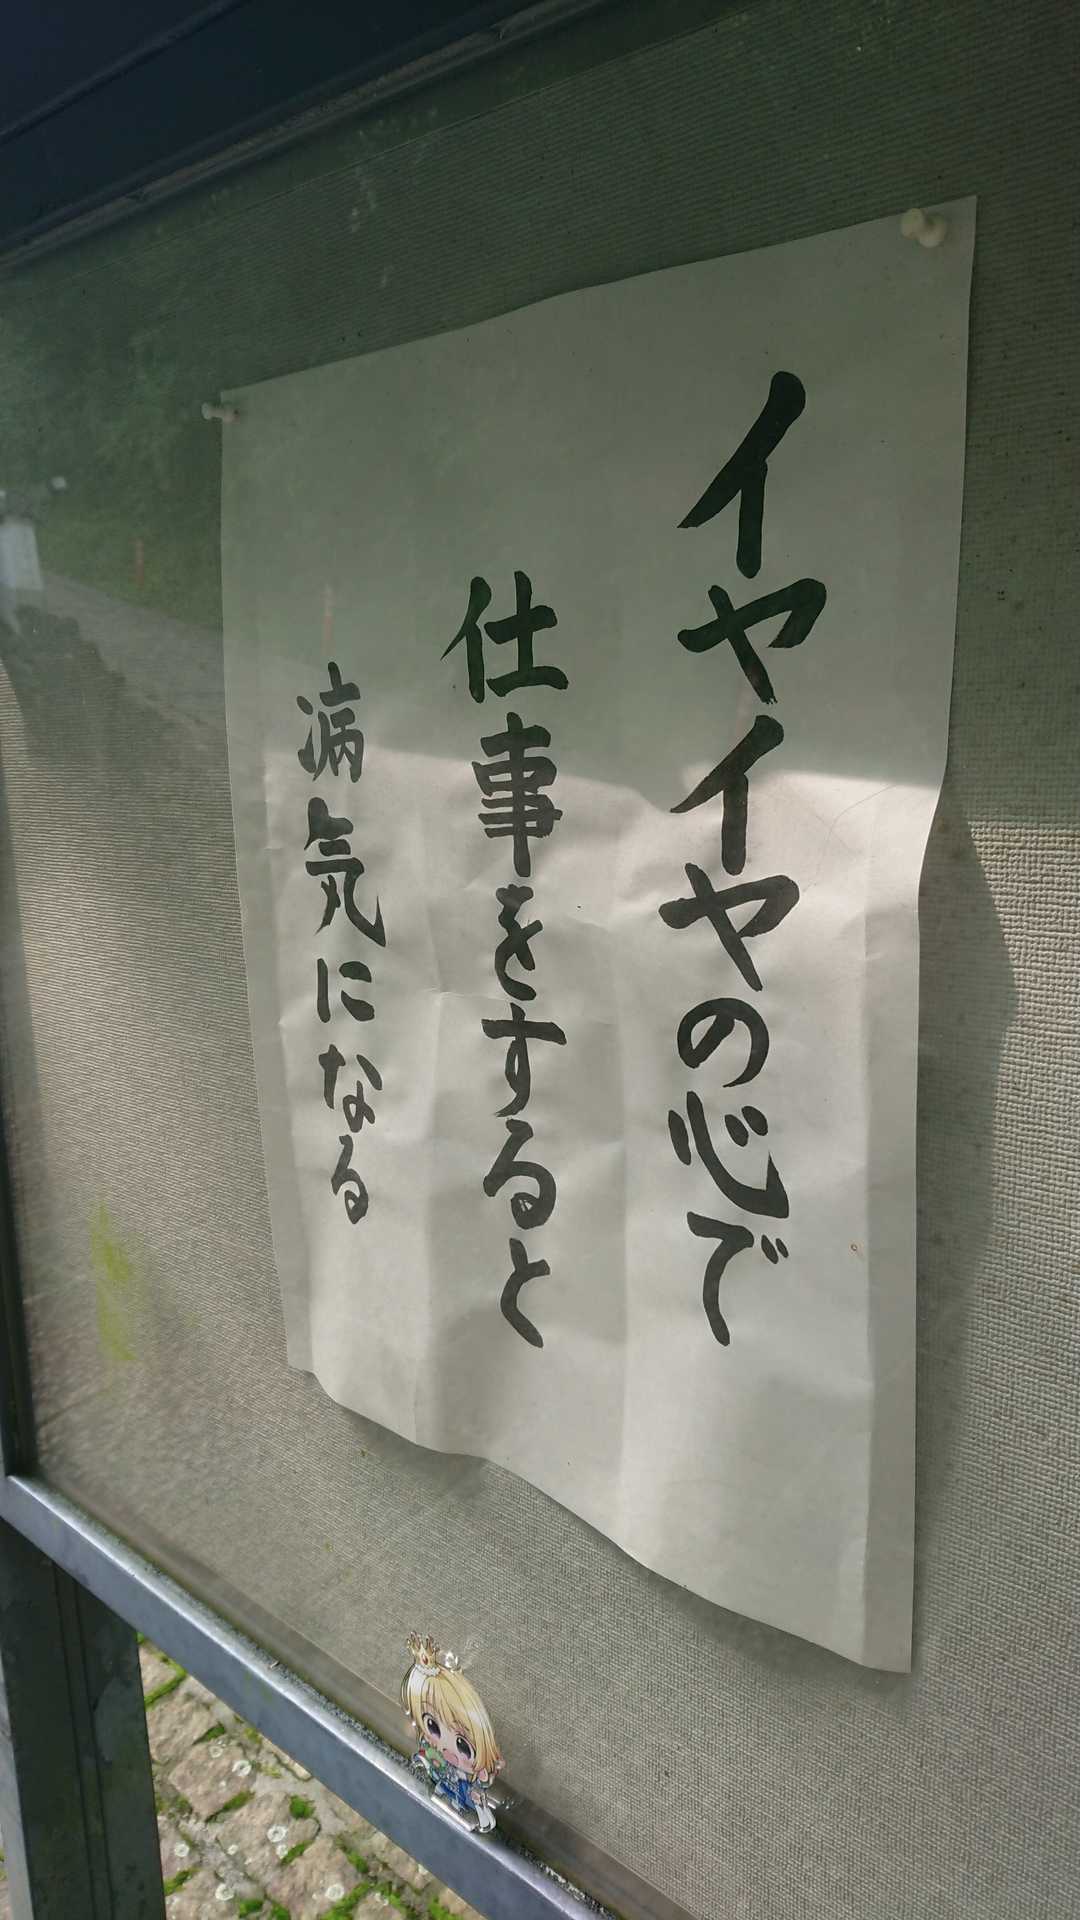 イヤイヤの心で
仕事をすると
病気になる